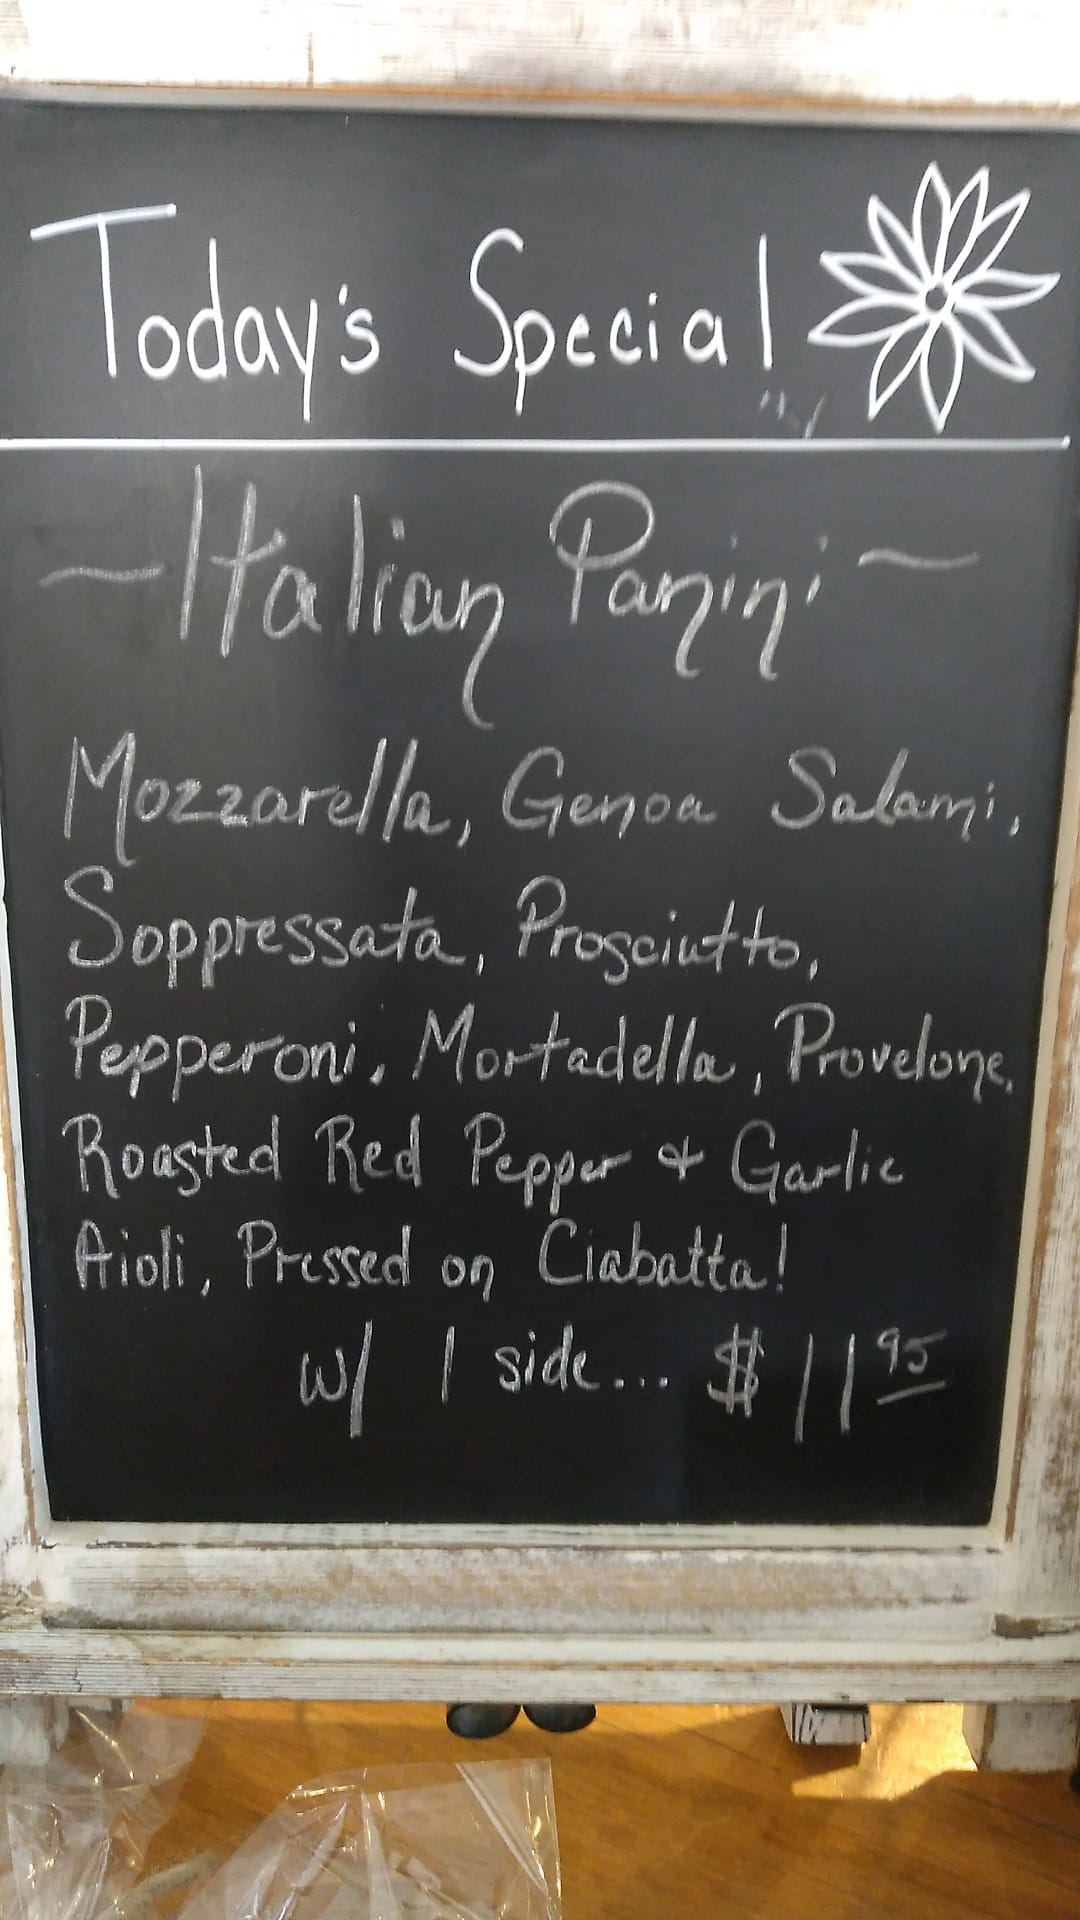 Today's Special
~Italian Panini~
Mozzarella, Genoa Salami,
Soppressata, Prosciutto,
Pepperoni, Mortadella, Provelone,
Roasted Red Pepper & Garlic
Aioli, Pressed on Ciabatta!
w/ 1 side... $11 95